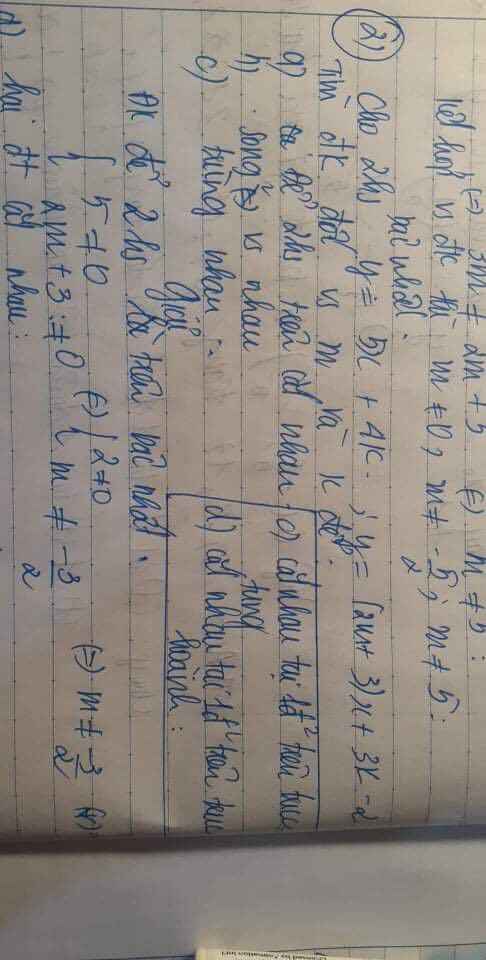 (=) 3m ≠ 2m + 5 (=) m ≠ 5 ;
kết hợp vs đk thì m ≠ 0 ; m ≠ -5/2 ; m ≠ 5 .
bậc nhất .
(2) Cho 2hs y = 5x + 4k . ; y = (2m + 3)x + 3k - 2
Tìm đk đối vs m và k để :
a) 2hs trên cắt nhau
e) cắt nhau tại 1đ² trên trục tung
b) song² vs nhau
c) trùng nhau .
d) cắt nhau tại 1đ² trên trục hoành :
Giải
ĐK để 2hs trên bậc nhất .
{ 5 ≠ 0 (=) { 2 ≠ 0
2m + 3 ≠ 0 m ≠ -3/2 (=) m ≠ -3/2 (*)
a) hai đt cắt nhau :